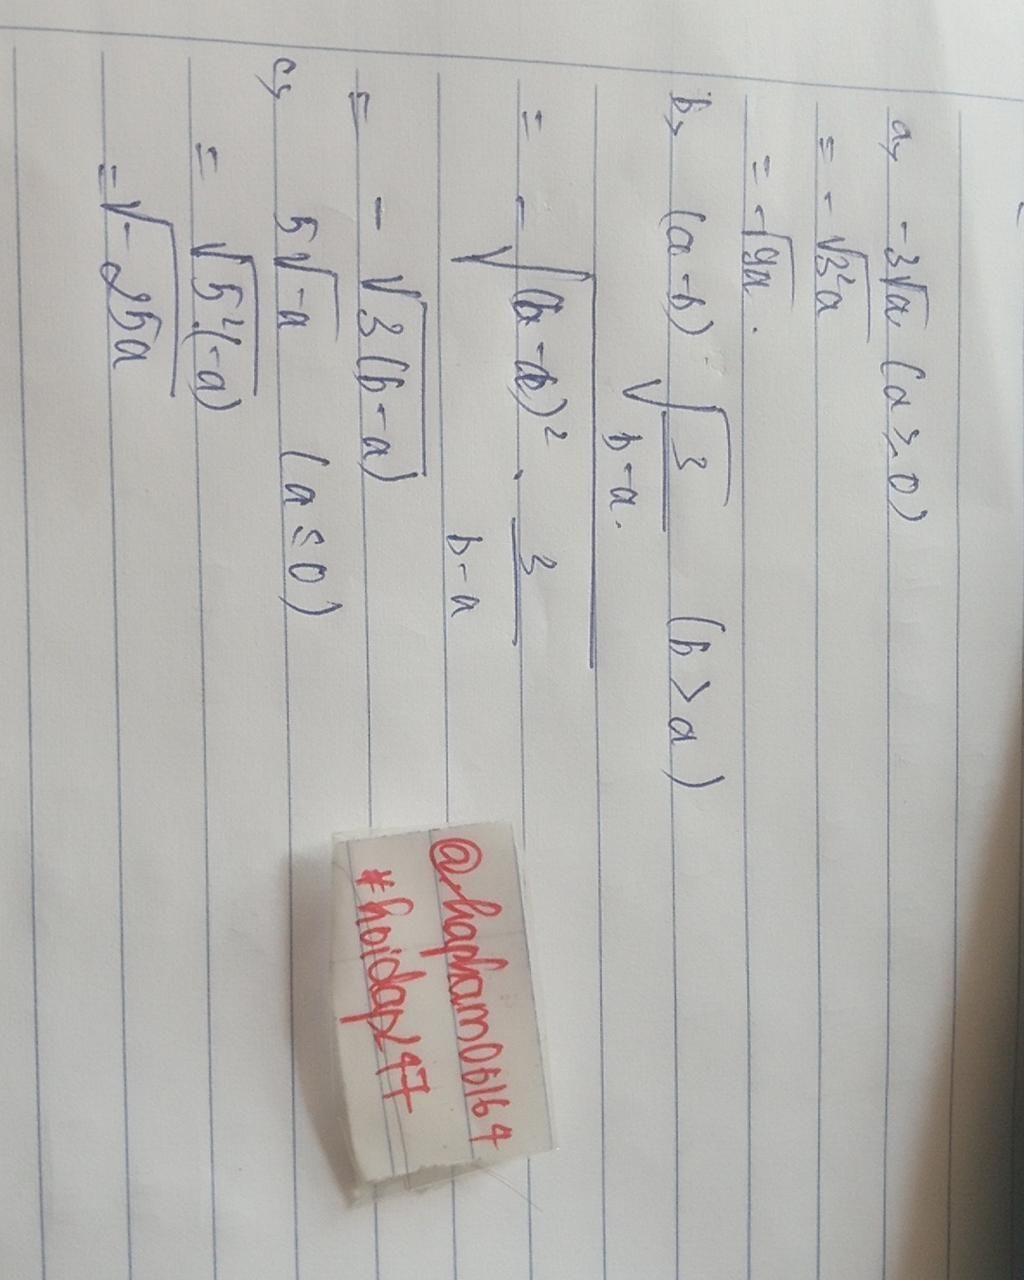 a, -3√a (a ≥ 0)
= -√3²a
= -√9a.
b, (a-b) √(3/(b-a)). (b > a)
= -√((b-a)² . 3/(b-a))
= -√3(b-a)
c, 5√-a (a ≤ 0)
= √5².(-a)
= √-25a
@hapham06164
#hoidap247